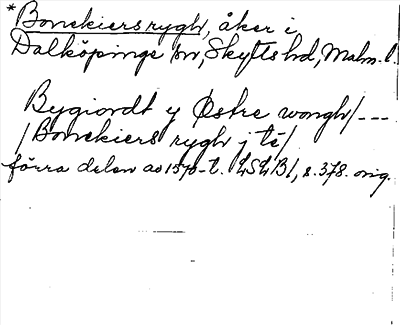 *Bonekiersrygh, åker i
Dalköpinge sn, Skytts hd, Malm. l.
Bygiordt y Østre wongh/---
/Bonekiers rygh j té/
förra delen av 1570-t. LSLB1, s. 378. orig.